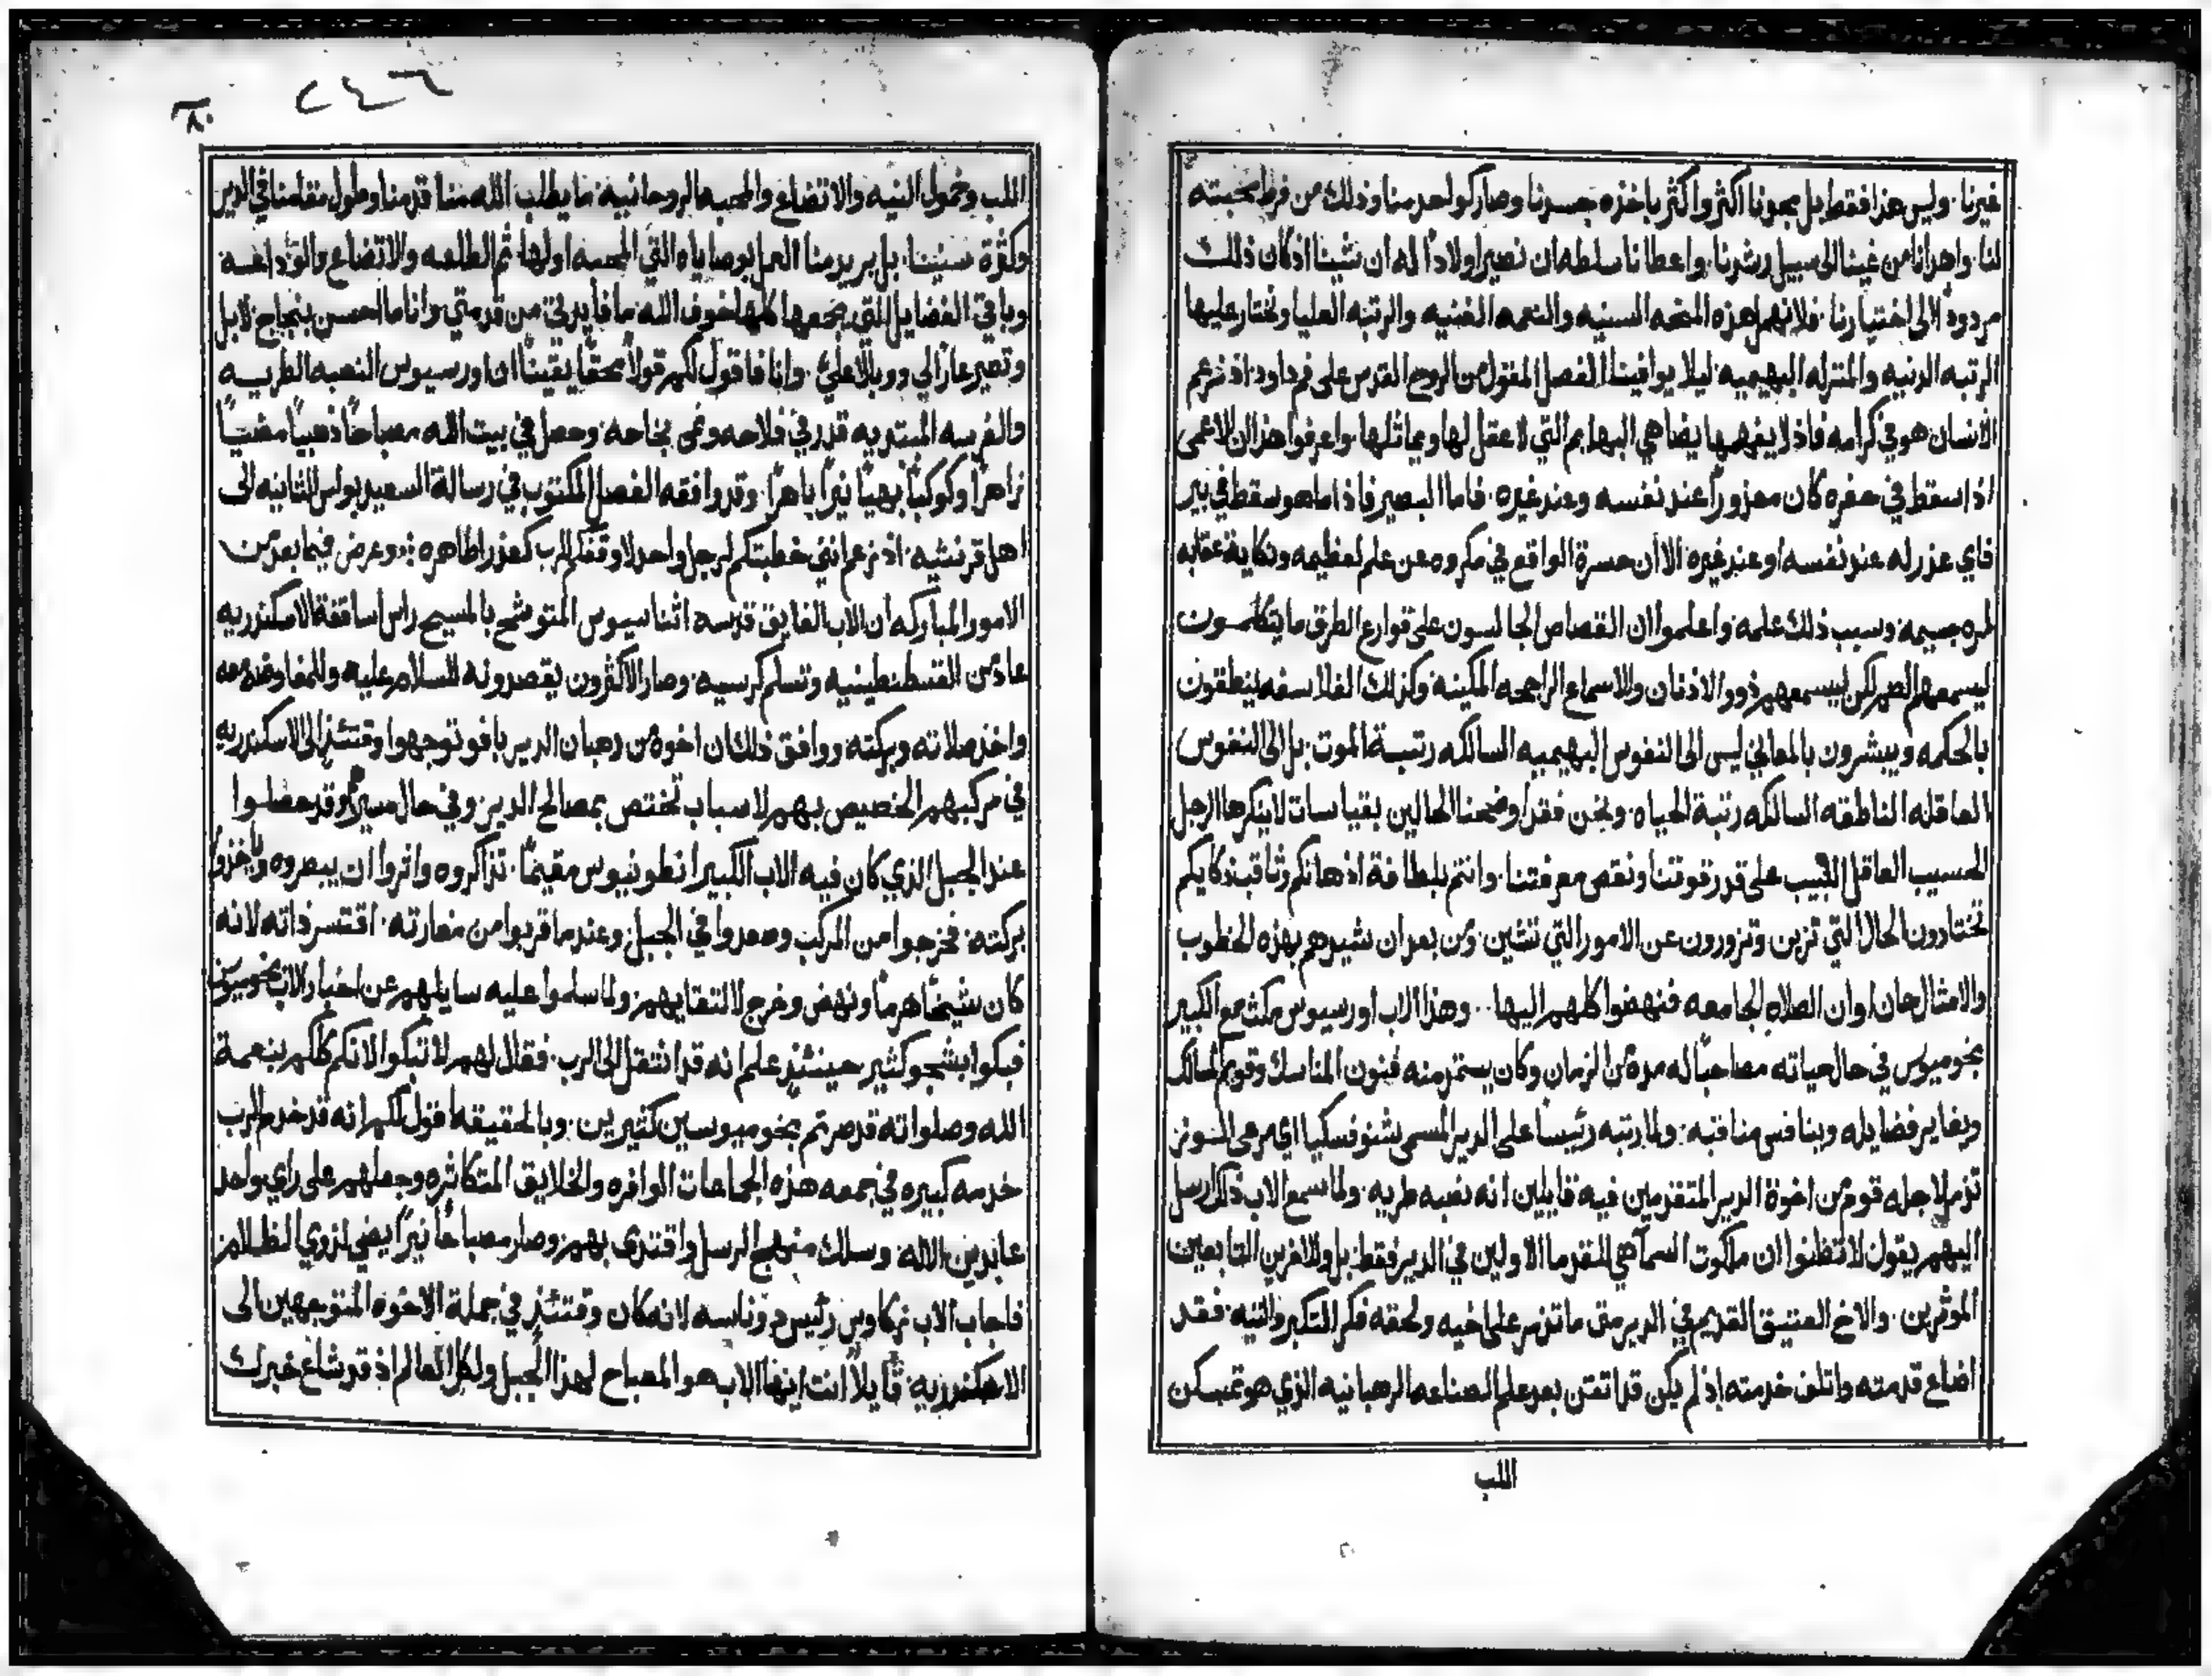 غيرنا. وليس هذا فقط بل يحبونا اكثر واكثر باخذه جسدنا وصار كواحد منا وذلك من فرط محبته
لنا. واهدانا من غينا الى سبيل رشدنا. واعطانا سلطه ان نصير اولاداً لله ان شينا اذ كان ذلك
مردوداً الى اختيارنا. فلا نهمل هذه المنحه السنيه والنعمه الغنيه والرتبه العليا ونختار عليها
الرتبه الدنيه والمنزله البهيميه. ليلا يوافينا الفصل المقول من الروح القدس على فم داود. اذ زعم
الانسان هو في كرامه فاذ لا يفهمها يضاهي البهايم التي لا عقل لها ويماثلها. واعرفوا هذا ان الاعمى
اذا سقط في حفره كان معذوراً عند نفسه وعند غيره. فاما البصير فاذا ما هو سقط في بير
فاي عذر له عند نفسه او عند غيره. الا ان حسرة الواقع في مكروه عن علم لعظيمه ونكاية عقابه
لمره جسيمه. وسبب ذلك علمه. واعلموا ان القصاص الجالسون على قوارع الطرق ما يتكلمون
ليسمعهم الصم لكن ليسمعهم ذوو الاذان والاسماع الراجحه المكينه. وكذلك الفلاسفه لينطقون
بالحكمه ويبشرون بالمعاني ليس الى النفوس البهيميه السالكه رتبة الموت. بل الى النفوس
العاقله الناطقه السالكه رتبة الحياه. ونحن فقد اوضحنا الحالين بقياسات لا ينكرها الرجل
الحسيب العاقل اللبيب على قدر قوتنا ونقص معرفتنا. وانتم بلطافة اذهانكم وثاقب ذكايكم
تختارون الحال التي تزين وتزورون عن الامور التي تشين. ومن بعد ان نشيدهم بهذه الخطوب
والامثال حان اوان الصلاه الجامعه فنهضوا كلهم اليها... وهذا الاب اورسيوس مكث مع الكبير
بخوميوس في حال حياته مصاحباً له مدة من الزمان وكان يستمد منه فنون المناسك وقويم المسالك
ويغاير فضايله وينافس مناقبه. ولما رتبه رئيساً على الدير المسمى شنوفسكيا اي مرعى النوتز
تزمر لاجله قوم من اخوة الدير المتقدمين فيه قايلين انه نصبه طريه. ولما سمع الاب ذلك ارسل
اليهم يقول لا تظنوا ان ملكوت السما هي للقدما الاولين في الدير فقط. بل وللاخرين التابعين
الموثرين. والاخ العتيق القديم في الدير متى ما تزمر على اخيه ولحقه فكر التكبر والتيه. فقد
اضاع قدمته واتلف خدمته اذ لم يكن قد اتقن بعد علم الصناعه الرهبانيه الذي هو تمسكن
اللب
٢٤٦
اللب وخمول النيه والاتضاع والمحبه الروحانيه. ما يطلب الله منا قدمنا وطول مقامنا في الدير
وكثرة سنينا. بل يريد منا العمل بوصاياه التي المحبه اولها ثم الطاعه والاتضاع والوداعه
وباقي الفضايل التي يجمعها كلها خوف الله. ما فايدتي من قدمتي وانا ما احسن بنجاح. لا بل
وتصير عاراً لي ووبالاً علي. وانا فاقول لكم قولاً محقاً يقيناً ان اورسيوس النصبه الطريه
والغرسه المبتديه قد رقي فلاحه ونمى نجاحه. وحصل في بيت الله مصباحاً ذهبياً مضيّاً
زاهراً وكوكباً بهياً نيراً باهراً. وقد وافقه الفصل المكتوب في رسالة السعيد بولس الثانيه الى
اهل قرنثيه. اذ زعم انني خطبتكم لرجل واحد لاوقفكم للرب كعذرا طاهره. وعرض فيما بعد من
الامور المباركه ان الاب الفايق قدسه اثناسيوس المتوشح بالمسيح راس اساقفة الاسكندريه
عاد من القسطنطينيه وتسلم كرسيه. وصار الاكثرون يقصدونه للسلام عليه وللمفاوضه معه
واخذ صلاته وبركته. ووافق ذلك ان اخوة من رهبان الدير بافو توجهوا وقتئذ الى الاسكندريه
في مركبهم الخصيص بهم لاسباب تختص بمصالح الدير. وفي حال مسيرهم وقد حصلوا
عند الجبل الذي كان فيه الاب الكبير انطونيوس مقيماً. تذاكروه واثروا ان يبصروه وياخذوا
بركته. فخرجوا من المركب وصعدوا في الجبل. وعندما قربوا من مغارته. اقتسر ذاته لانه
كان شيخاً هرماً ونهض وخرج لالتقايهم. ولما سلموا عليه سايلهم عن اخبار الاب بخوميوس
فبكوا بشجو كثير حينئذ علم انه قد انتقل الى الرب. فقال لهم لا تبكوا لانكم كلكم بنعمة
الله وصلواته قد صرتم بخوميوسين كثيرين. وبالحقيقه اقول لكم انه قد خدم الرب
خدمه كبيره في جمعه هذه الجماعات الوافره والخلايق المتكاثره وجعلهم على راي واحد
عابدين الاله. وسلك منهج الرسل واقتدى بهم وصار مصباحاً نيراً يضي لذوي الظلام
فاجاب الاب زكاوس رئيس دوناسه لانه كان وقتئذ في جملة الاخوه المتوجهين الى
الاسكندريه. قايلاً انت ايها الاب هو المصباح لهذا الجبل ولكل العالم اذ قد شاع خبرك